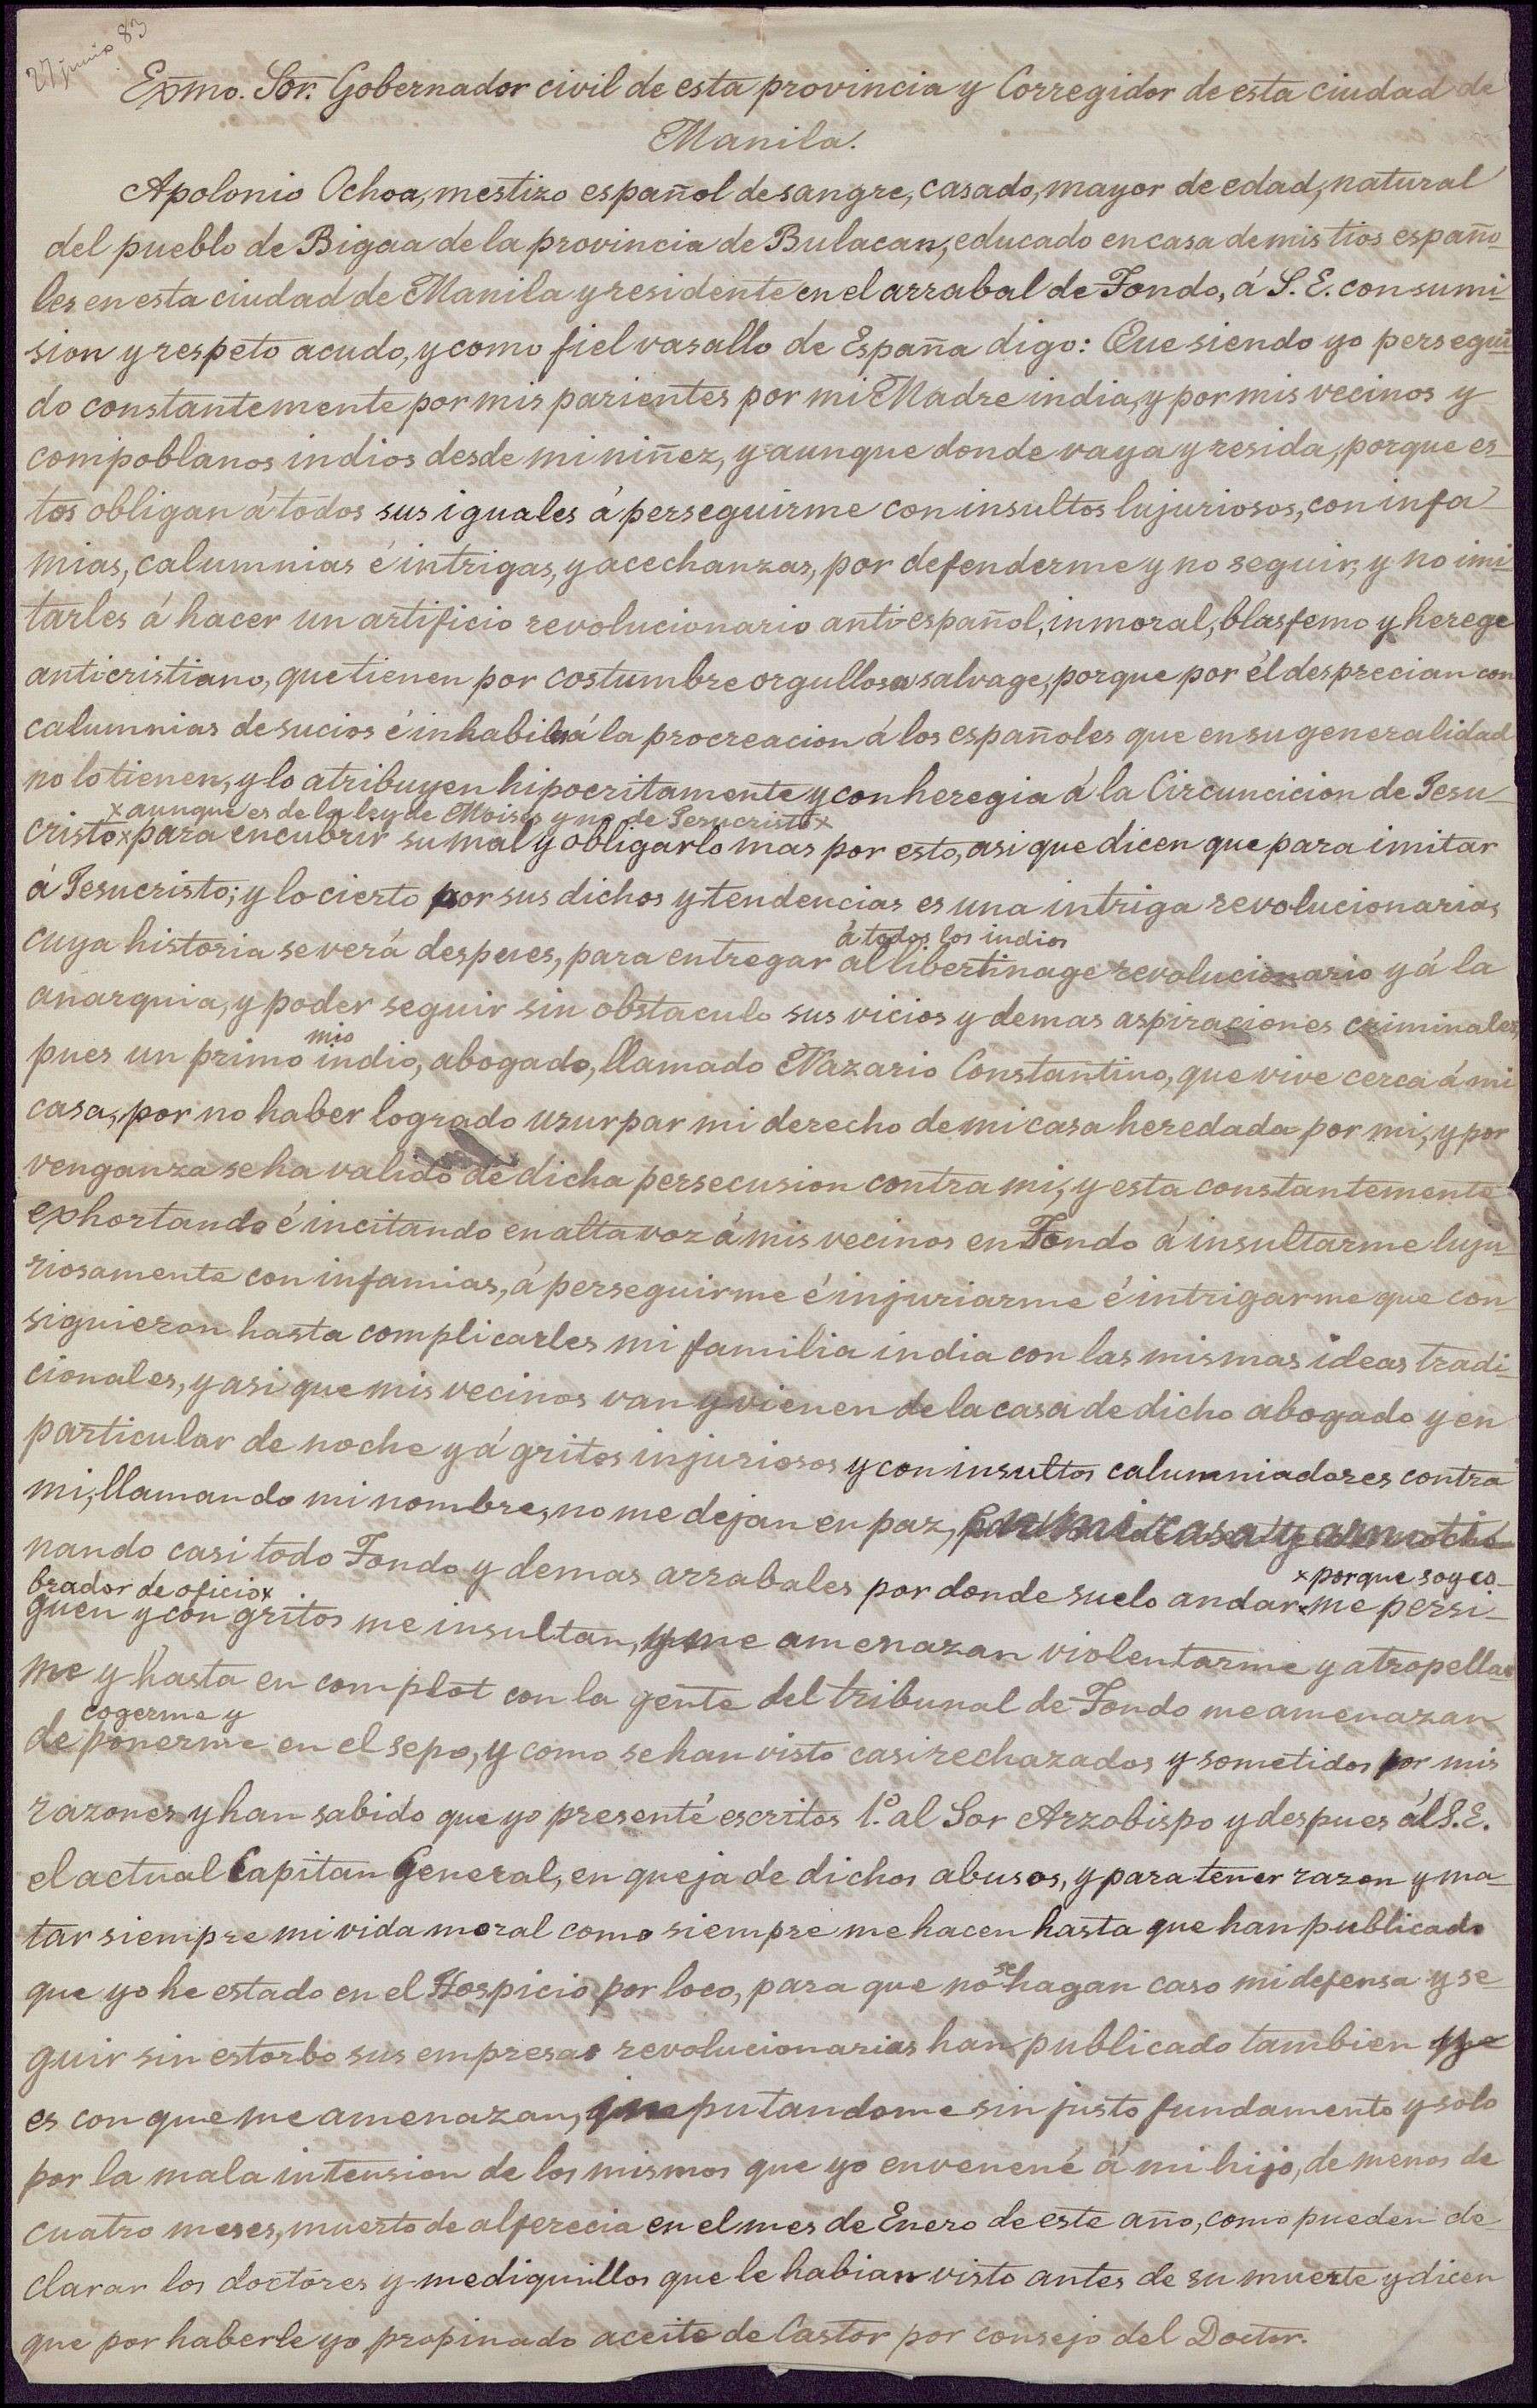 27 junio 83
Exmo. Sor. Gobernador civil de esta provincia y Corregidor de esta ciudad de
Manila.
Apolonio Ochoa, mestizo español de sangre, casado, mayor de edad, natural
del pueblo de Bigaa de la provincia de Bulacan, educado en casa de mis tios españo-
les en esta ciudad de Manila y residente en el arrabal de Tondo, á S. E. con sumi-
sion y respeto acudo, y como fiel vasallo de España digo: Que siendo yo persegui-
do constantemente por mis parientes por mi Madre india, y por mis vecinos y
compoblanos indios desde mi niñez, y aunque donde vaya y resida, porque es-
tos obligan á todos sus iguales á perseguirme con insultos lujuriosos, con infa-
mias, calumnias é intrigas, y acechanzas, por defenderme y no seguir, y no imi-
tarles á hacer un artificio revolucionario anti-español, inmoral, blasfemo y herege
anticristiano, que tienen por costumbre orgullosa salvage, porque por él desprecian con
calumnias de sucios é inhabiles á la procreacion á los españoles que en su generalidad
no lo tienen, y lo atribuyen hipocritamente y con heregia á la Circuncicion de Jesu-
x aunque es de la ley de Moises y no de Jesucristo x
cristo x para encubrir su mal y obligarlo mas por esto, asi que dicen que para imitar
á Jesucristo; y lo cierto por sus dichos y tendencias es una intriga revolucionaria,
á todos los indios
cuya historia se verá despues, para entregar al libertinage revolucionario y á la
anarquia, y poder seguir sin obstaculo sus vicios y demas aspiraciones criminales,
mio
pues un primo indio, abogado, llamado Nazario Constantino, que vive cerca á mi
casa, por no haber logrado usurpar mi derecho de mi casa heredada por mi, y por
venganza se ha valido de dicha persecusion contra mi, y esta constantemente
exhortando é incitando en alta voz á mis vecinos en Tondo á insultarme luju-
riosamente con infamias, á perseguirme é injuriarme é intrigarme que con-
siguieron hasta complicarles mi familia india con las mismas ideas tradi-
cionales, y asi que mis vecinos van y vienen de la casa de dicho abogado y en
particular de noche y á gritos injuriosos y con insultos calumniadores contra
mi, llamando mi nombre, no me dejan en paz, en mi casa y amoti-
nando casi todo Tondo y demas arrabales por donde suelo andar x me persi-
x porque soy co-
brador de oficio x
guen y con gritos me insultan, y me amenazan violentarme y atropellar-
me y hasta en complot con la gente del tribunal de Tondo me amenazan
cogerme y
de ponerme en el sepo, y como se han visto casi rechazados y sometidos por mis
razones y han sabido que yo presenté escritos 1.º al Sor Arzobispo y despues ál S. E.
el actual Capitan General, en queja de dichos abusos, y para tener razon y ma-
tar siempre mi vida moral como siempre me hacen hasta que han publicado
se
que yo he estado en el Hospicio por loco, para que no hagan caso mi defensa y se-
guir sin estorbo sus empresas revolucionarias han publicado tambien
es con que me amenazan, imputandome sin justo fundamento y solo
por la mala intension de los mismos que yo envenené á mi hijo, de menos de
cuatro meses, muerto de alferecia en el mes de Enero de este año, como pueden de-
clarar los doctores y mediquillos que le habian visto antes de su muerte y dicen
que por haberle yo propinado aceite de Castor por consejo del Doctor.